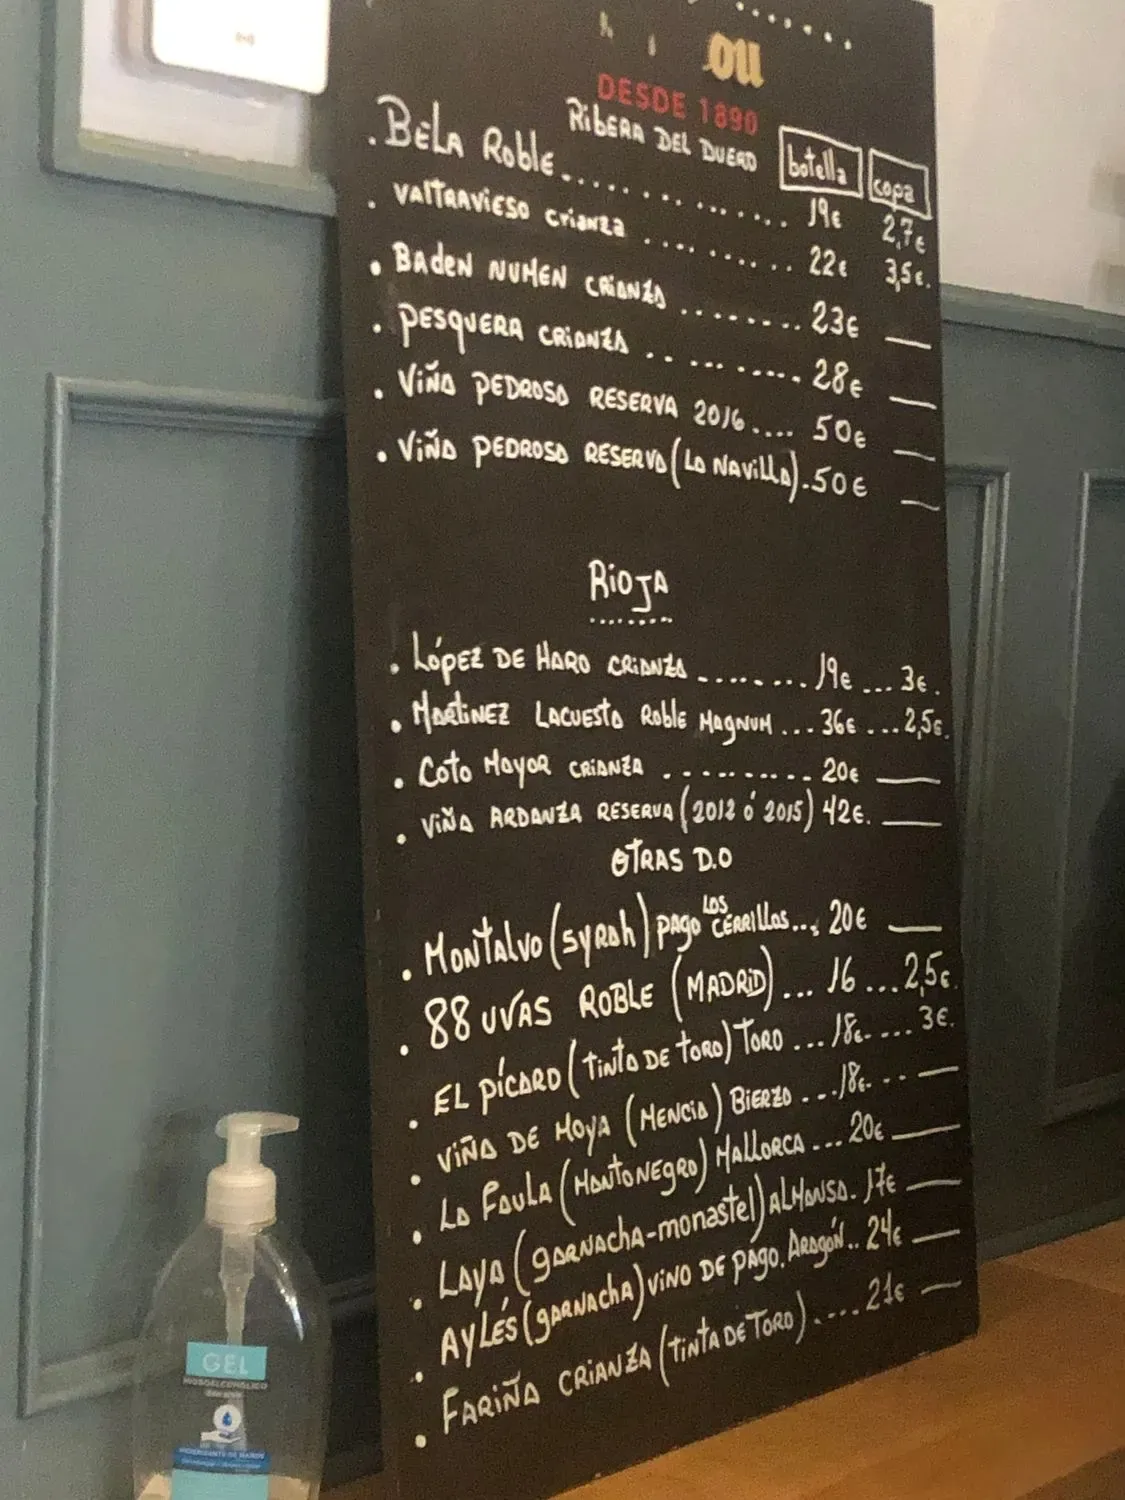 OU
DESDE 1890
RIBERA DEL DUERO botella copa
. BELA Roble............... 19€ 2,7€
. VALTRAVIESO crianza ........ 22€ 3,5€.
. BADEN NUMEN CRIANZA ........ 23€ __
. PESQUERA CRIANZA .. ... ----. 28€ __
. VIÑA PEDROSA RESERVA 2016.... 50€ __
. VIÑA PEDROSA RESERVA (LA NAVILLA). 50€ __
RIOJA
........
. LÓPEZ DE HARO CRIANZA ........ 19€ ... 3€.
. MARTINEZ LACUESTA Roble MAGNUM ... 36€ ... 2,5€.
. COTO MAYOR CRIANZA .......... 20€ __
. VIÑA ARDANZA RESERVA (2012 ó 2015) 42€. __
OTRAS D.O
. MONTALVO (SYRAH) PAGO LOS CERRILLOS.... 20€ __
. 88 UVAS ROBLE (MADRID) ... 16 ... 2,5€.
. EL PÍCARO (TINTA DE TORO) TORO ... 18€. ... 3€.
. VIÑA DE MOYA (MENCIA) BIERZO ... 18€. .. __
. LA FAULA (MANTONEGRO) MALLORCA ... 20€ __
. LAYA (GARNACHA-monastel) ALMANSA. 17€ __
. AYLÉS (GARNACHA) VINO DE PAGO. ARAGÓN.. 24€ __
. FARIÑA CRIANZA (TINTA DE TORO) ..... 21€ __
GEL
HIDROALCOHÓLICO
HIGIENIZANTE DE MANOS